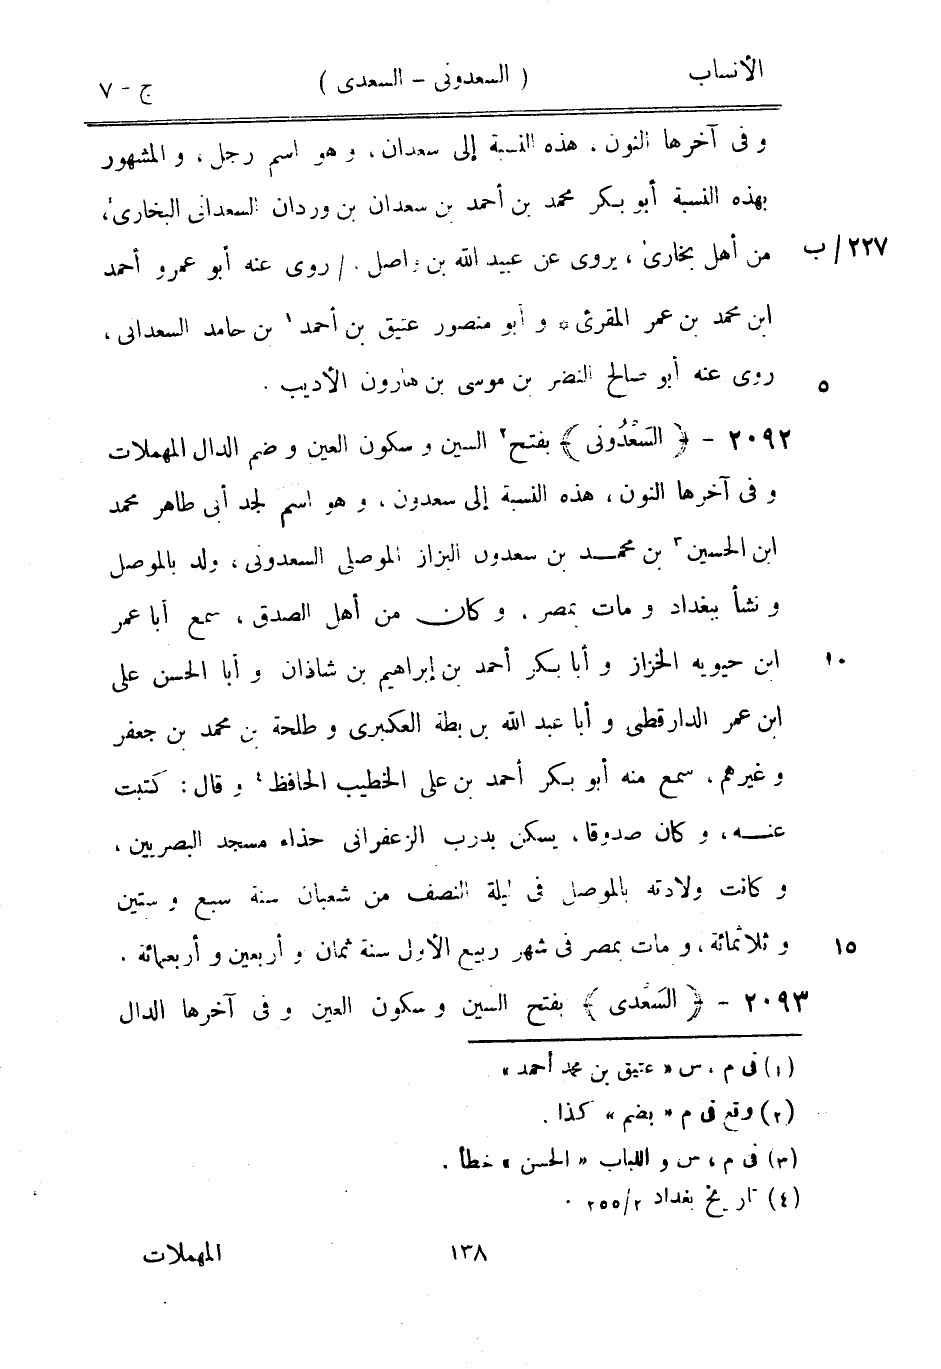 الأنساب ( السعدونى - السعدى ) ج - ٧
و فى آخرها النون، هذه النسبة إلى سعدان، و هو اسم رجل، و المشهور
بهذه النسبة أبو بكر محمد بن أحمد بن سعدان بن وردان السعدانى البخارى،
من أهل بخارى، يروى عن عبيد الله بن واصل. / روى عنه أبو عمرو أحمد ٢٢٧/ ب
ابن محمد بن عمر المقرئ * و أبو منصور عتيق بن أحمد ١ بن حامد السعدانى،
روى عنه أبو صالح النضر بن موسى بن هارون الأديب . ٥
٢٠٩٢ - ﴿ السَعْدُونى ﴾ بفتح ٢ السين و سكون العين و ضم الدال المهملات
و فى آخرها النون، هذه النسبة إلى سعدون، و هو اسم لجد أبى طاهر محمد
ابن الحسين ٣ بن محمد بن سعدون البزاز الموصلى السعدونى، ولد بالموصل
و نشأ ببغداد و مات بمصر، و كان من أهل الصدق، سمع أبا عمر
ابن حيويه الخزاز و أبا بكر أحمد بن إبراهيم بن شاذان و أبا الحسن على ١٠
ابن عمر الدارقطنى و أبا عبد الله بن بطة العكبرى و طلحة بن محمد بن جعفر
و غيرهم، سمع منه أبو بكر أحمد بن على الخطيب الحافظ ٤ و قال: كتبت
عنه، و كان صدوقا، يسكن بدرب الزعفرانى حذاء مسجد البصريين،
و كانت ولادته بالموصل فى ليلة النصف من شعبان سنة سبع و ستين
و ثلاثمائة، و مات بمصر فى شهر ربيع الأول سنة ثمان و أربعين و أربعمائة . ١٥
٢٠٩٣ - ﴿ السَعْدى ﴾ بفتح السين و سكون العين و فى آخرها الدال
(١) فى م، س « عتيق بن محمد أحمد »
(٢) وقع فى م « بضم » كذا .
(٣) فى م، س و اللباب « الحسن » خطأ .
(٤) تاريخ بغداد ٢/ ٢٥٥ .
١٣٨ المهملات